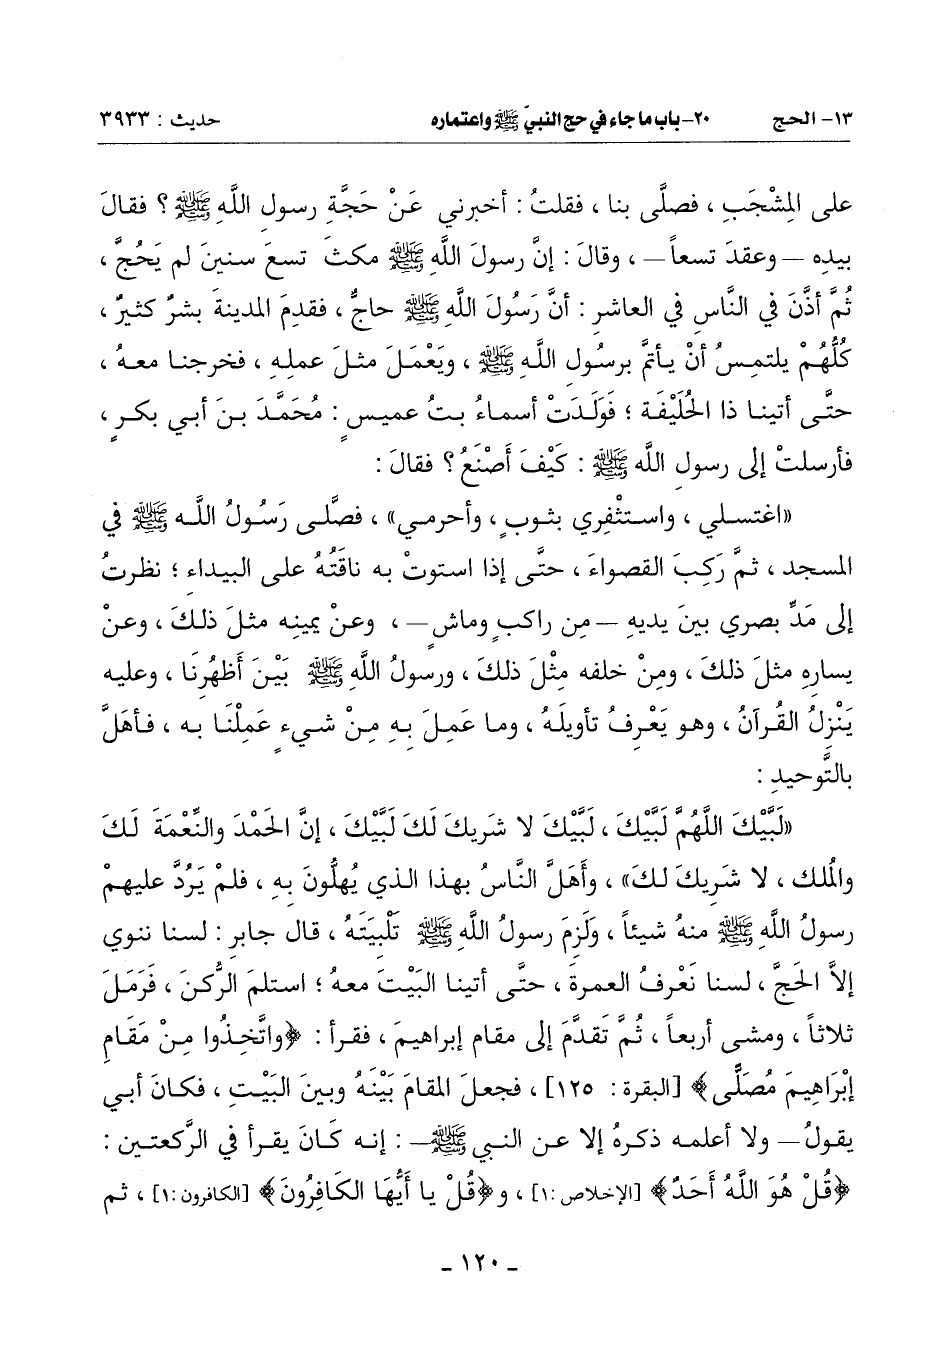 ١٣- الحج ٢٠- باب ما جاء في حج النبيّ ﷺ واعتماره حديث : ٣٩٣٣
على المِشْجَبِ ، فصلَّى بنا ، فقلتُ : أخبرني عَنْ حَجَّةِ رسولِ اللَّهِ ﷺ ؟ فقالَ
بيدِه —وعقدَ تسعاً— ، وقالَ : إنَّ رسولَ اللَّهِ ﷺ مكثَ تسعَ سنينَ لم يَحُجَّ ،
ثُمَّ أذَّنَ في النَّاسِ في العاشرِ : أنَّ رَسُولَ اللَّهِ ﷺ حاجٌّ ، فقدِمَ المدينةَ بشرٌ كثيرٌ ،
كُلُّهُمْ يلتمِسُ أنْ يأتمَّ برسُولِ اللَّهِ ﷺ ، ويَعْمَلَ مثلَ عملِهِ ، فخرجنا معهُ ،
حتَّى أتينا ذا الحُلَيْفَةِ ؛ فوَلَدَتْ أسماءُ بنتُ عميسٍ : مُحَمَّدَ بنَ أبي بكرٍ ،
فأرسلتْ إلى رسولِ اللَّه ﷺ : كَيْفَ أَصْنَعُ ؟ فقالَ :
«اغتسلي ، واستثْفِري بثوبٍ ، وأحرمي» ، فصلَّى رَسُولُ اللَّهِ ﷺ في
المسجد ، ثمَّ رَكِبَ القصواءَ ، حتَّى إذا استوتْ به ناقَتُهُ على البيداءِ ؛ نظرتُ
إلى مَدِّ بصري بينَ يديهِ —مِن راكبٍ وماشٍ— ، وعنْ يمينِه مثلَ ذلكَ ، وعنْ
يسارِهِ مثلَ ذلكَ ، ومِنْ خلفه مِثْلَ ذلكَ ، ورسولُ اللَّهِ ﷺ بَيْنَ أظهُرِنَا ، وعليه
يَنْزِلُ القُرآنُ ، وهو يَعْرِفُ تأويلَهُ ، وما عَمِلَ بِهِ مِنْ شيءٍ عَمِلْنَا به ، فأهَلَّ
بالتَّوحيدِ :
«لَبَّيْكَ اللَّهُمَّ لَبَّيْكَ ، لَبَّيْكَ لا شريكَ لَكَ لَبَّيْكَ ، إنَّ الحَمْدَ والنِّعْمَةَ لَكَ
والمُلك ، لا شَرِيكَ لكَ» ، وأهَلَّ النَّاسُ بهذا الذي يُهلُّونَ بِهِ ، فلمْ يَرُدَّ عليهمْ
رسولُ اللَّهِ ﷺ منهُ شيئاً ، ولَزِمَ رسولُ اللَّهِ ﷺ تَلْبِيَتَهُ ، قال جابر : لسنا ننوي
إلاَّ الحَجَّ ، لسنا نَعْرِفُ العمرةَ ، حتَّى أتينا البَيْتَ معهُ ؛ استلمَ الرُّكنَ ، فَرَمَلَ
ثلاثاً ، ومشى أربعاً ، ثُمَّ تَقدَّمَ إلى مقام إبراهيمَ ، فقرأ : ﴿واتَّخِذُوا مِنْ مَقَامِ
إبْرَاهِيمَ مُصَلَّى﴾ [البقرة : ١٢٥] ، فجعلَ المقامَ بَيْنَهُ وبينَ البَيْتِ ، فكانَ أبي
يقولُ— ولا أعلمه ذكرهُ إلا عن النبي ﷺ— : إنه كَانَ يقرأ في الرَّكعتين :
﴿قُلْ هُوَ اللَّهُ أَحَدٌ﴾ [الإخلاص :١] ، و﴿قُلْ يا أَيُّهَا الكَافِرُونَ﴾ [الكافرون :١] ، ثم
- ١٢٠ -